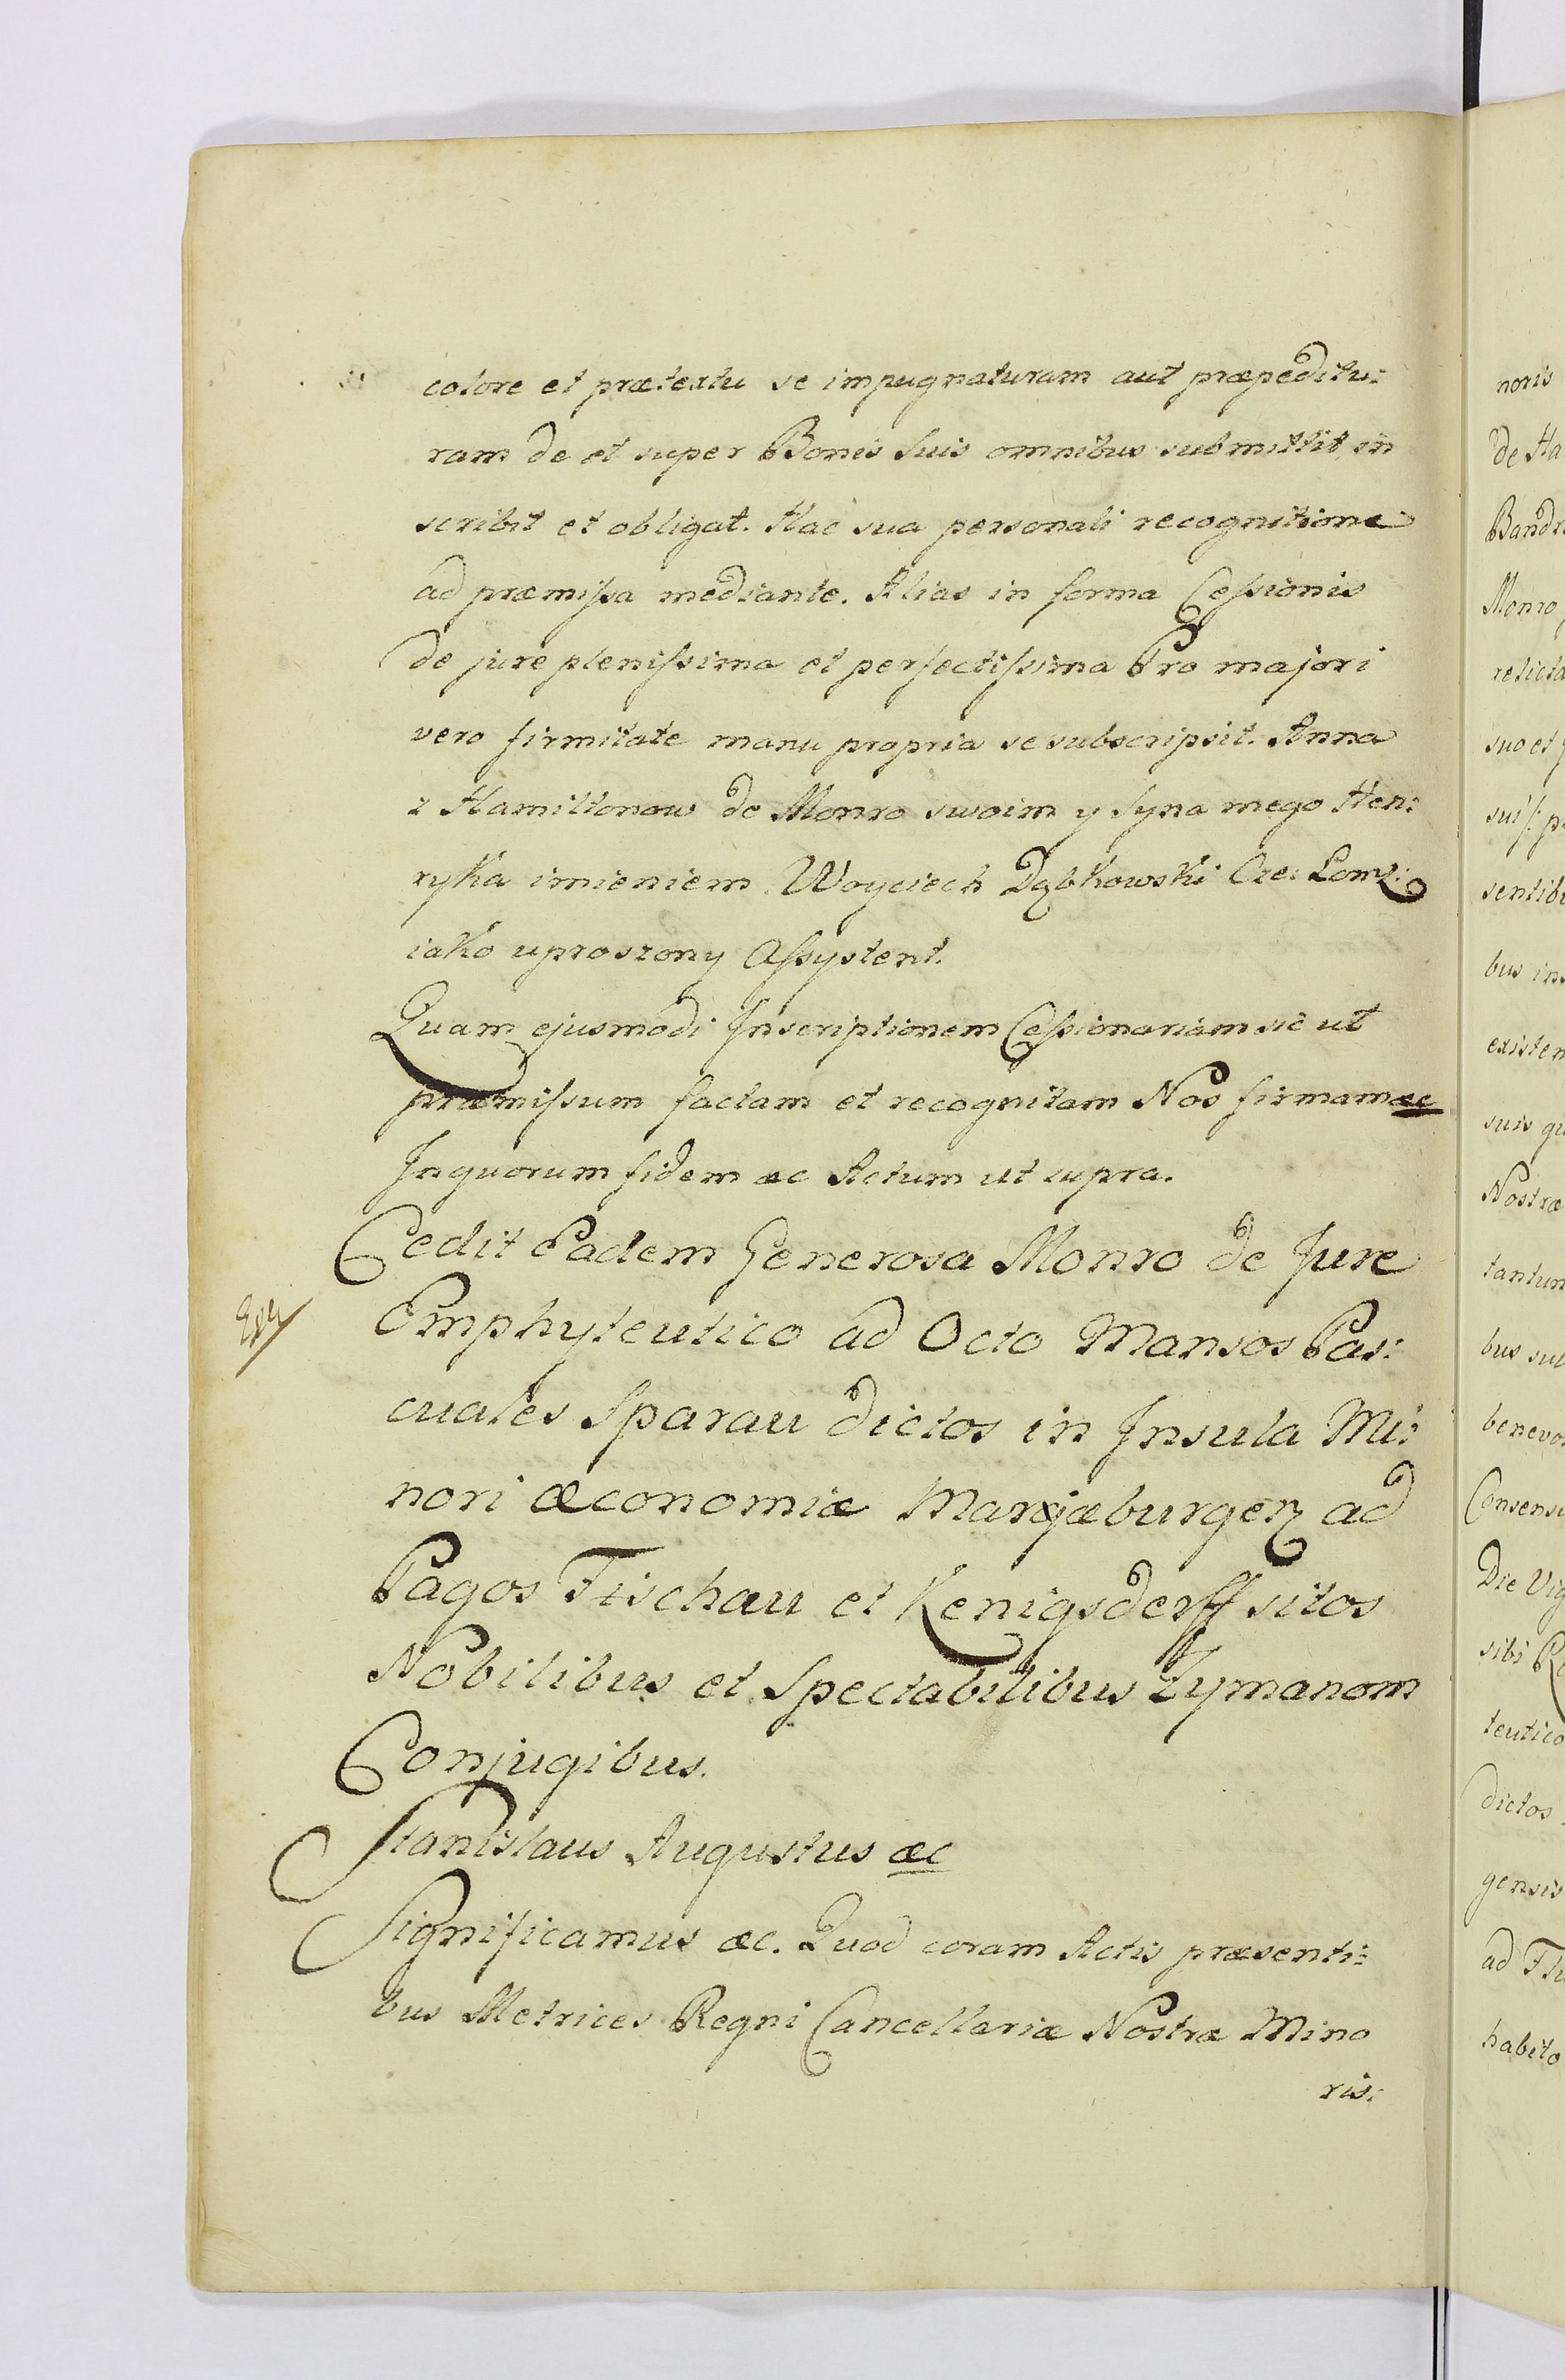 colore et prætextu se impugnaturam aut præpeditu:
ram de et super Bonis suis omnibus submittit in
scribit et obligat. Hac sua personali recognitione
ad præmissa mediante. Alias in forma Cessionis
de jure plenissima et perfectissima Pro majori
vero firmitate manu propria se subscripsit. Anna
z Hamiltonow de Monro swoim y syna mego Hen:
ryka imieniem Woyciech Dąbkowski Lomz:
iako uproszony Assystent.
Quam ejusmodi Inscriptionem Cessionariam sic ut
præmissum factam et recognitam Nos firmam æc
In quorum fidem æc Actum ut supra.
Cedit Eadem Generosa Monro de Jure
Emphyteutico ad Octo Mansos Pas:
cuales Sparau dictos in Insula Mi:
nori æconomiæ Marjæburgen ad
Pagos Fischau et Kenigsderff sitos
Nobilibus et Spectabilibus Zymanom
Conjugibus.
Stanislaus Augustus æc
Significamus æc. Quod coram Actis præsenti:
bus Metrices Regni Cancellariæ Nostræ Mino
ris:
noris
de Ha
Bandr
Monro
relicta
suo et
suis: p
sentib
bus in
existen
suis qu
Nostræ
tantum
bus sub
benevo
Consensu
Die Vig
sibi R
teutico
dictos
gensis
ad
habito